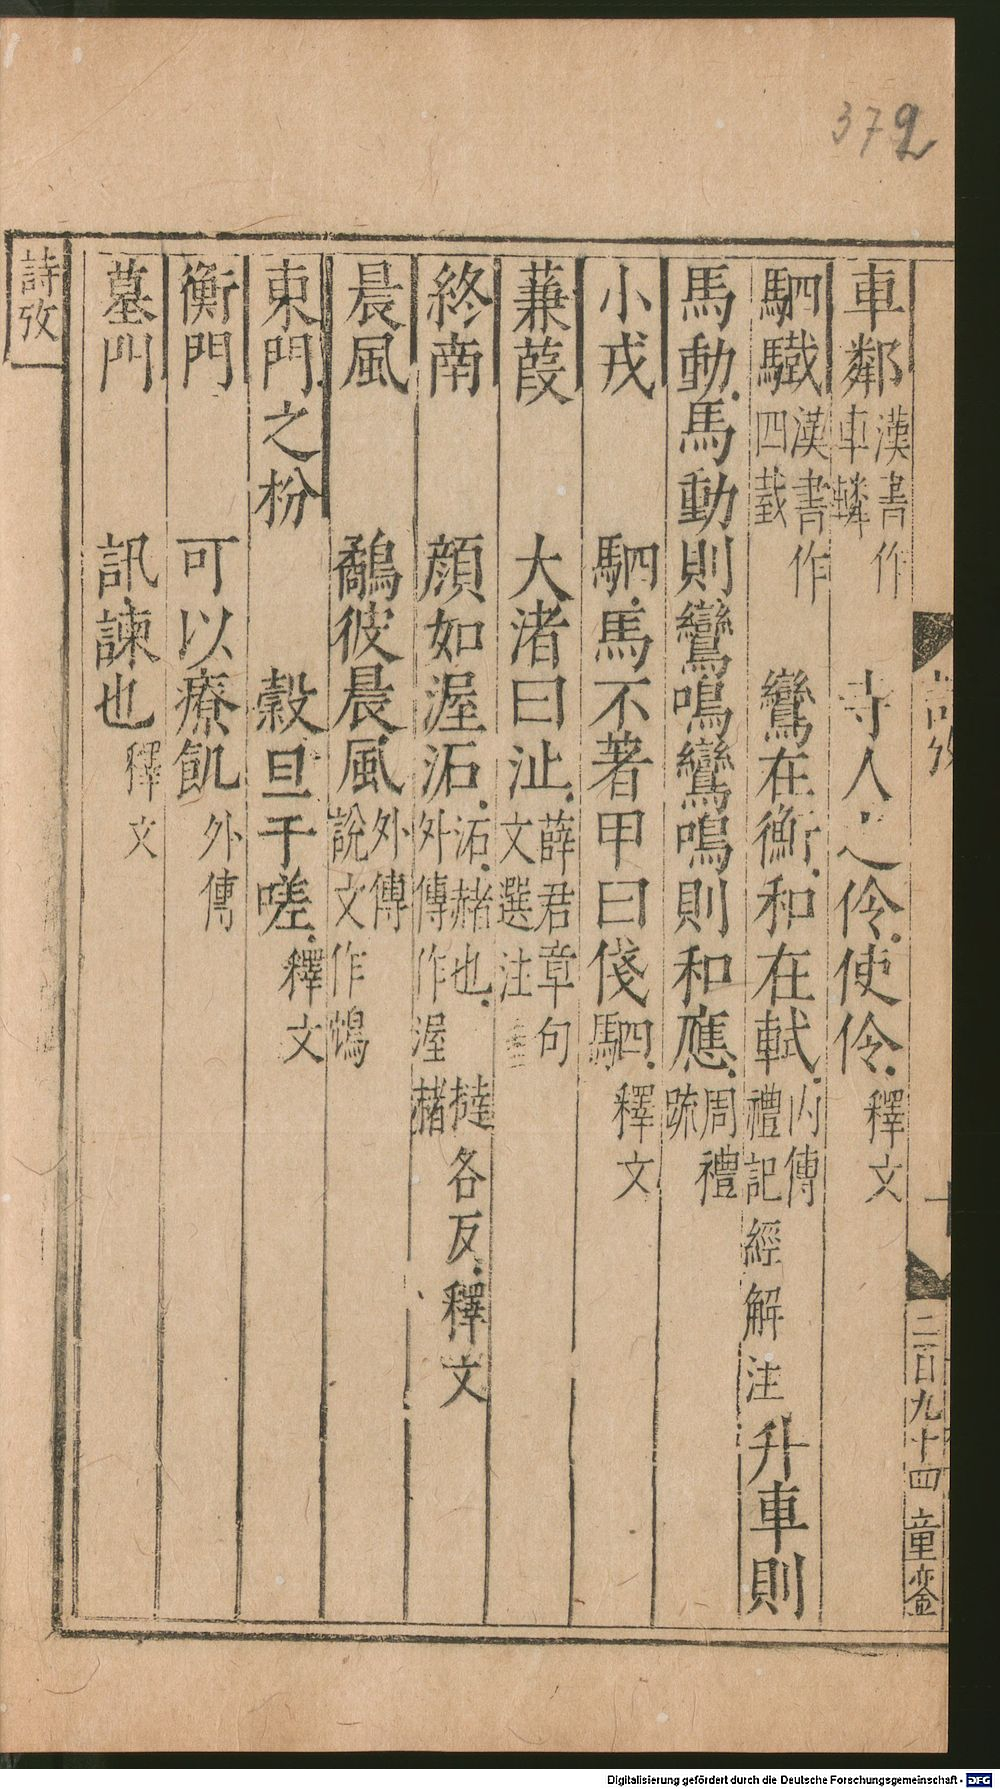 372
車鄰漢書作車轔 寺人之伶使伶釋文
駟驖漢書作四䥫 鸞在衡和在軾內傳禮記經解注升車則
馬動馬動則鸞鳴鸞鳴則和應周禮疏
小戎 駟馬不著甲曰俴駟釋文
蒹葭 大渚曰沚薛君章句文選注
終南 顏如渥沰沰赭也外傳作渥赭撻各反釋文
晨風 鷸彼晨風外傳說文作鴪
東門之枌 穀旦于嗟釋文
衡門 可以療飢外傳
墓門 訊諫也釋文
詩攷一
詩攷
十
二百九十四 童鑾
Digitalisierung gefördert durch die Deutsche Forschungsgemeinschaft - DFG